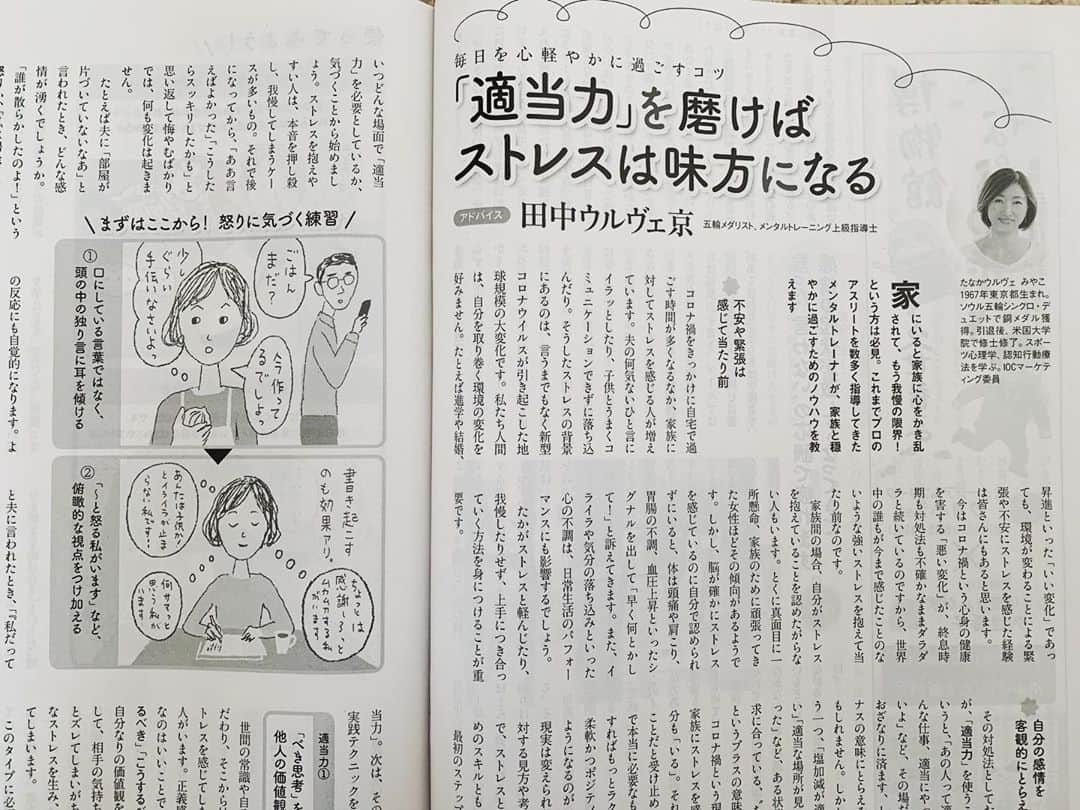 毎日を心軽やかに過ごすコツ
「適当力」を磨けば
ストレスは味方になる
アドバイス
田中ウルヴェ京
五輪メダリスト、メンタルトレーニング上級指導士
たなかウルヴェ みやこ
1967年東京都生まれ。
ソウル五輪シンクロ・デ
ュエットで銅メダル獲
得。引退後、米国大学
院で修士修了。スポー
ツ心理学、認知行動療
法を学ぶ。IOCマーケ
ティング委員
家にいると家族に心をかき乱
されて、もう我慢の限界！
という方は必見。これまでプロの
アスリートを数多く指導してきた
メンタルトレーナーが、家族と穏
やかに過ごすためのノウハウを教
えます
不安や緊張は
感じて当たり前
コロナ禍をきっかけに自宅で過
ごす時間が多くなるなか、家族に
対してストレスを感じる人が増え
ています。夫の何気ないひと言に
イラッとしたり、子供とうまくコ
ミュニケーションできずに落ち込
んだり。そうしたストレスの背景
にあるのは、言うまでもなく新型
コロナウイルスが引き起こした地
球規模の大変化です。私たち人間
は、自分を取り巻く環境の変化を
好みません。たとえば進学や結婚、
昇進といった「いい変化」であっ
ても、環境が変わることによる緊
張や不安にストレスを感じた経験
は皆さんにもあると思います。
今はコロナ禍という心身の健康
を害する「悪い変化」が、終息時
期も対処法も不確かなままダラダ
ラと続いているのですから、世界
中の誰もが今まで感じたことのな
いような強いストレスを抱えて当
たり前なのです。
家族間の場合、自分がストレス
を抱えていることを認めたがらな
い人もいます。とくに真面目に一
所懸命、家族のために頑張ってき
た女性ほどその傾向があるようで
す。しかし、脳が確かにストレス
を感じているのに自分で認められ
ずにいると、体は頭痛や肩こり、
胃腸の不調、血圧上昇といったシ
グナルを出して「早く何とかし
て！」と訴えてきます。また、イ
ライラや気分の落ち込みといった
心の不調は、日常生活のパフォー
マンスにも影響するでしょう。
たかがストレスと軽んじたり、
我慢したりせず、上手につき合っ
ていく方法を身につけることが重
要です。
自分の感情を
客観的にとら
その対処法として
が、「適当力」を使
いうと、「あの人って適
んな仕事、適当にや
いよ」など、その場
おざなりに済ます、
ナスの意味にとらえ
もしれません。しか
う一つ、「塩加減が適
い」「適当な場所が見
った」など、ある状
求に合っている、“
というプラスの意味
コロナ禍という現
家族にストレスを感
分も“いる”。それ
ことだと受け止め
で本当に必要なも
すればもっとラク
柔軟かつポジティ
ようになるのが
現実は変えられ
対する見方や考
で、ストレスと
めのスキルとも
最初のステップ
いつどんな場面で「適当
力」を必要としているか、
気づくことから始めまし
ょう。ストレスを抱えや
すい人は、本音を押し殺
し、我慢してしまうケー
スが多いもの。それで後
になってから、「ああ言
えばよかった」「こうした
らスッキリしたかも」と
思い返して悔やむばかり
では、何も変化は起きま
せん。
たとえば夫に「部屋が
片づいていないなあ」と
言われたとき、どんな感
情が湧くでしょうか。
「誰が散らかしたのよ！」という
まずはここから！ 怒りに気づく練習
ごはんまだ？
少しぐらい手伝いなさいよっ
今作ってるでしょっ
① 口にしている言葉ではなく、
頭の中の独り言に耳を傾ける
書き起こすのも効果アリ。
あんたは子供か！とイライラが止まらない私です！
何サマ？って思いっきり私がいます
ちょっとは感謝しろ、とムカムカする私がいます
② 「〜と怒る私がいます」など、
俯瞰的な視点をつけ加える
の反応にも自覚的になります。よ
と夫に言われたとき、「『私だって
当力」。次は、そ
実践テクニックを
適当力①
「べき思考」を
他人の価値観
世間の常識や自
だわり、そこから
トレスを感じてし
人がいます。正義
なのはいいことで
るべき」「こうする
自分なりの価値観
して、相手の気持ち
とズレてしまいがち
なストレスを生み、
てしまいます。
このタイプに必